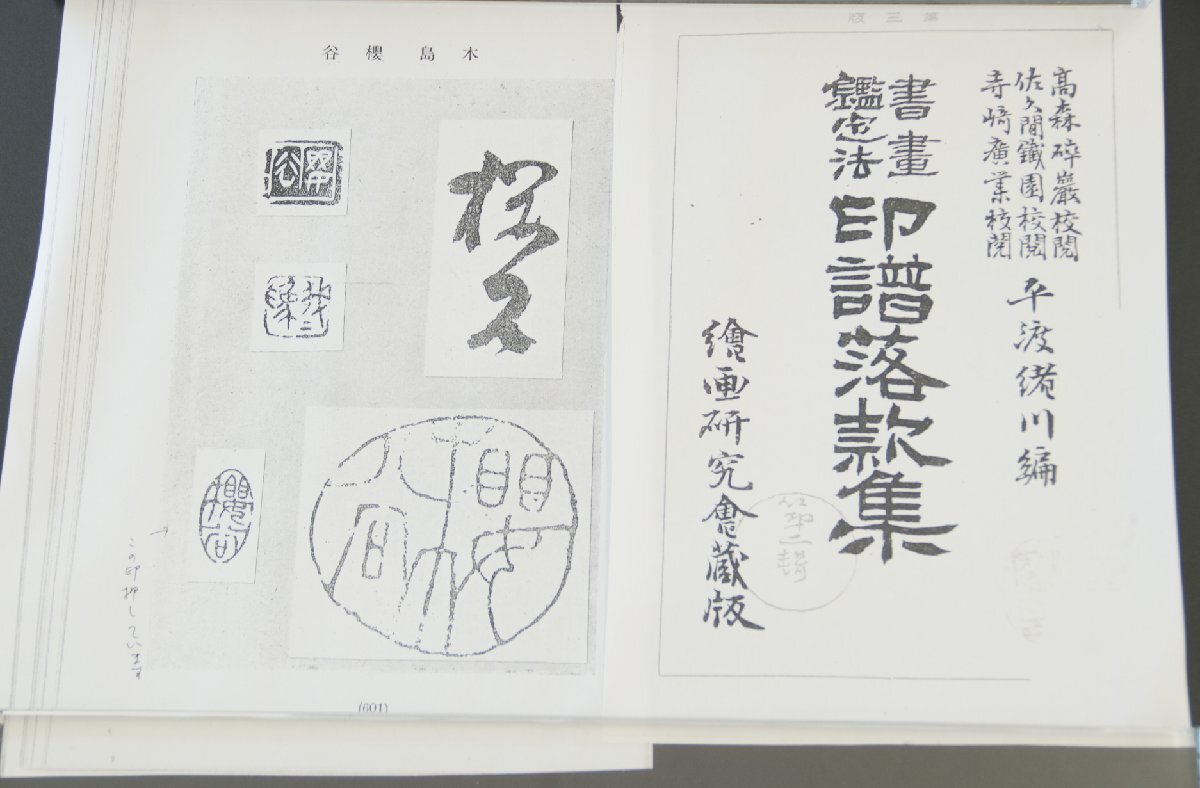 第三版
高森碎巖校閲
佐久間鐵園校閲
寺﨑廣業校閲
平渡緒川編
書畫
鑑定法
印譜落款集
繪画研究會蔵版
木島櫻谷
櫻谷
櫻谷
櫻谷
櫻谷
この印押しています
(601)